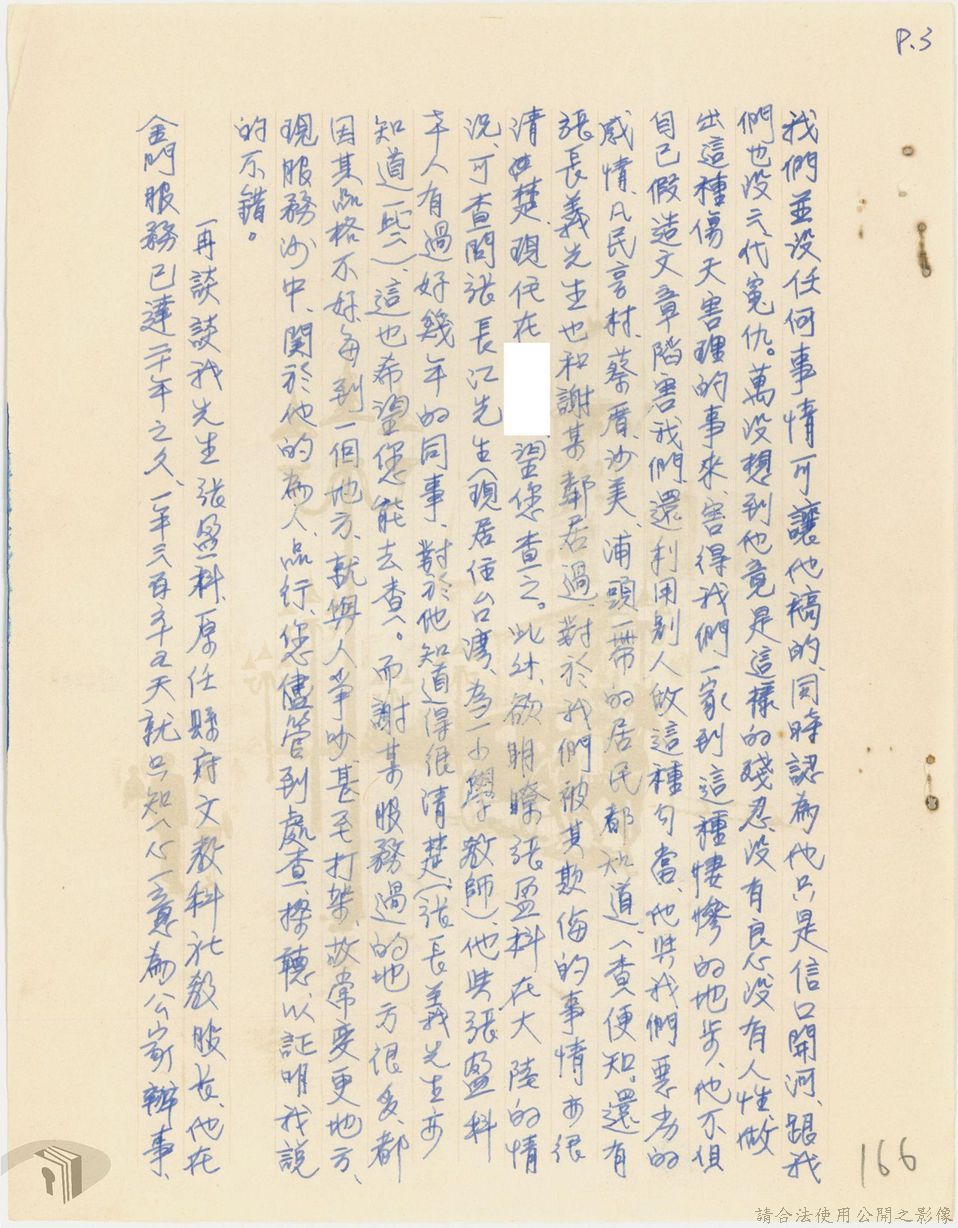 P.3
我們並没任何事情可讓他搞的、同時認為他只是信口開河、跟我
們也没三代冤仇。萬没想到他竟是這樣的殘忍、没有良心没有人性、做
出這種傷天害理的事來、害得我們一家到這種悽慘的地步、他不但
自己假造文章陷害我們、還利用别人做這種勾當、他與我們惡劣的
感情、凡民享村、蔡厝、沙美、浦頭一帶的居民都知道、一查便知。還有
張長義先生也和謝某鄰居過、對於我們被其欺侮的事情亦很
清楚、現住在 望您查之。此外、欲明瞭張盈科在大陸的情
況、可查問張長江先生(現居住台灣、為一小學教師)、他與張盈科
本人有過好幾年的同事、對於他知道得很清楚、(張長義先生亦
知道一些)、這也希望您能去查查。而謝某服務過的地方很多、都
因其品格不好、每到一個地方、就與人爭吵甚至打架、故常變更地方、
現服務沙中、関於他的為人、品行、您儘管到處查、探聽、以証明我說
的不錯。
再談談我先生張盈科、原任縣府文教科社教股長、他在
金門服務已達二十年之久、一年三百六十五天就只知一心一意為公家辦事、
166
請合法使用公開之影像